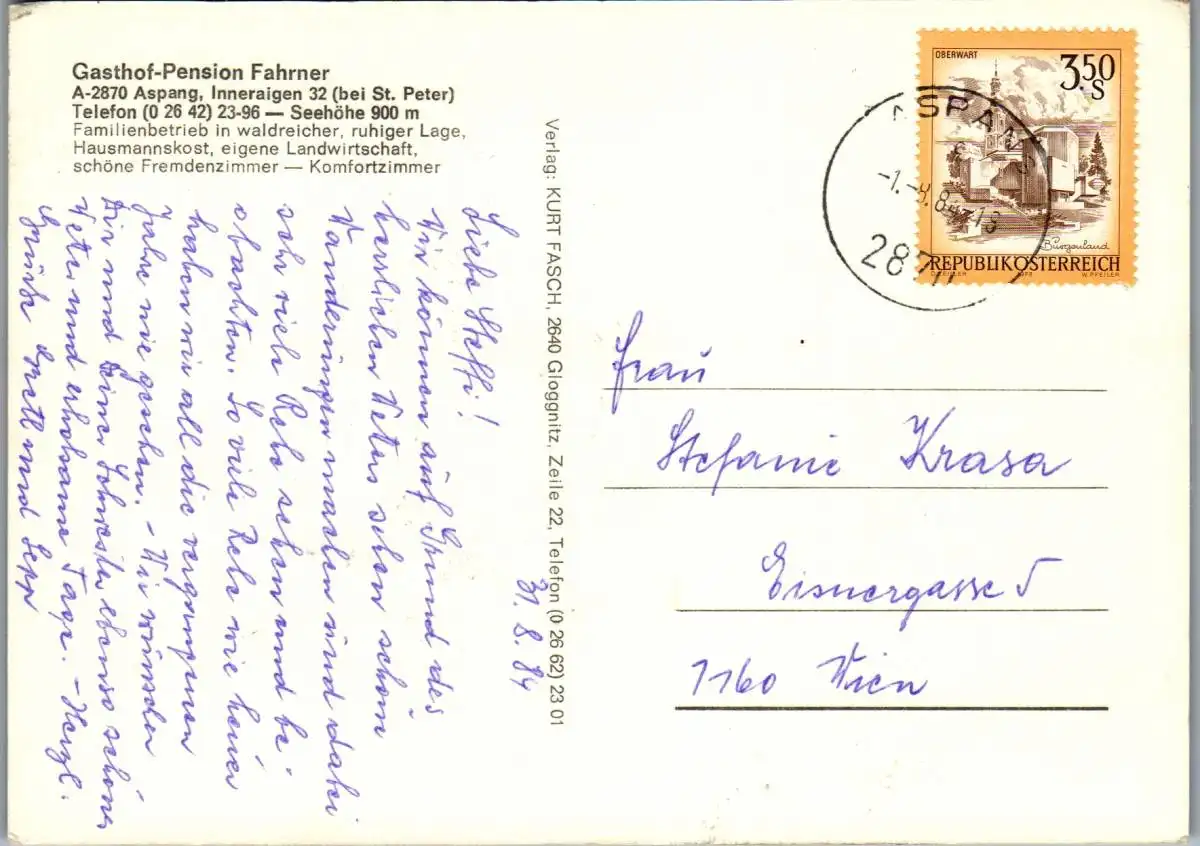 Gasthof-Pension Fahrner
A-2870 Aspang, Inneraigen 32 (bei St. Peter)
Telefon (0 26 42) 23-96 — Seehöhe 900 m
Familienbetrieb in waldreicher, ruhiger Lage,
Hausmannskost, eigene Landwirtschaft,
schöne Fremdenzimmer — Komfortzimmer
31.8.84
Liebe Steffi!
Wir können auf Grund des
herrlichen Wetters schon schöne
Wanderungen machen und dabei
sehr viele Rehe sehen und be-
obachten. So viele Rehe wie heuer
haben wir all die vergangenen
Jahre nie gesehen. – Wir wünschen
Dir und Deiner Schwester ebenso schönes
Wetter und erholsame Tage. – Herzl.
Grüße Gretl und Sepp
Verlag: KURT FASCH, 2640 Gloggnitz, Zeile 22, Telefon (0 26 62) 23 01
OBERWART
3.50
S
Burgenland
REPUBLIK ÖSTERREICH
W. PFEILER
ASPANG
Frau
Stefanie Krasa
Eisnergasse 5
1160 Wien